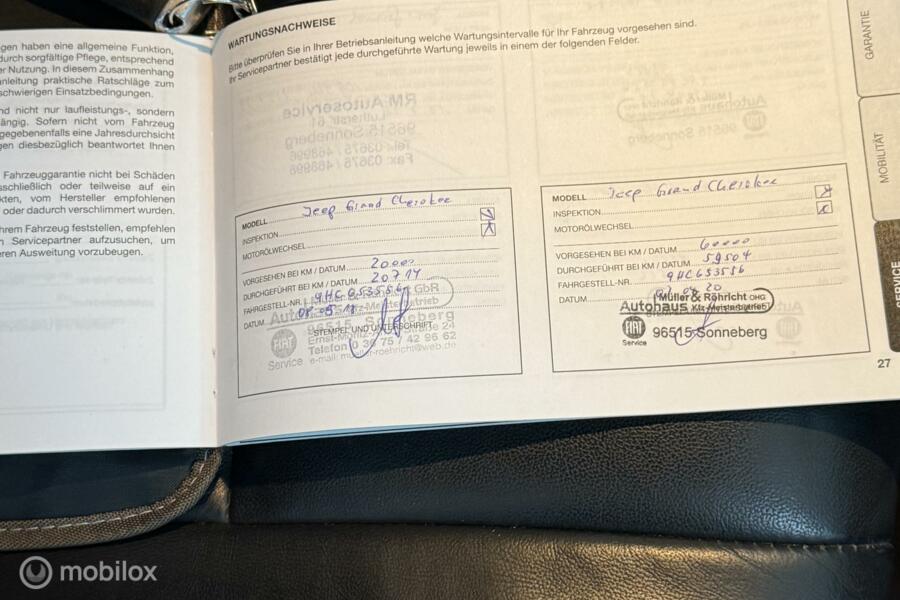 gen haben eine allgemeine Funktion,
durch sorgfältige Pflege, entsprechend
er Nutzung. In diesem Zusammenhang
anleitung praktische Ratschläge zum
schwierigen Einsatzbedingungen.
nd nicht nur laufleistungs-, sondern
ängig. Sofern nicht vom Fahrzeug
gegebenenfalls eine Jahresdurchsicht
gen diesbezüglich beantwortet Ihnen
Fahrzeuggarantie nicht bei Schäden
sschließlich oder teilweise auf ein
kten, vom Hersteller empfohlenen
oder dadurch verschlimmert wurden.
hrem Fahrzeug feststellen, empfehlen
n Servicepartner aufzusuchen, um
ren Ausweitung vorzubeugen.
WARTUNGSNACHWEISE
Bitte überprüfen Sie in Ihrer Betriebsanleitung welche Wartungsintervalle für Ihr Fahrzeug vorgesehen sind.
Ihr Servicepartner bestätigt jede durchgeführte Wartung jeweils in einem der folgenden Felder.
RM Autoservice
96515 Sonneberg
MODELL Jeep Grand Cherokee
INSPEKTION
MOTORÖLWECHSEL
VORGESEHEN BEI KM / DATUM 20000
DURCHGEFÜHRT BEI KM / DATUM 20714
FAHRGESTELL-NR. 9HC653556
DATUM
GbR
96515 Sonneberg
STEMPEL UND UNTERSCHRIFT
FIAT
Service
Telefon 0 36 75 / 42 96 62
e-mail: mueller-roehricht@web.de
MODELL Jeep Grand Cherokee
INSPEKTION
MOTORÖLWECHSEL
VORGESEHEN BEI KM / DATUM 60000
DURCHGEFÜHRT BEI KM / DATUM 59504
FAHRGESTELL-NR. 9HC653556
DATUM
Müller & Röhricht OHG
Autohaus Kfz-Meisterbetrieb
FIAT
Service
96515 Sonneberg
27
GARANTIE
MOBILITÄT
SERVICE
mobilox